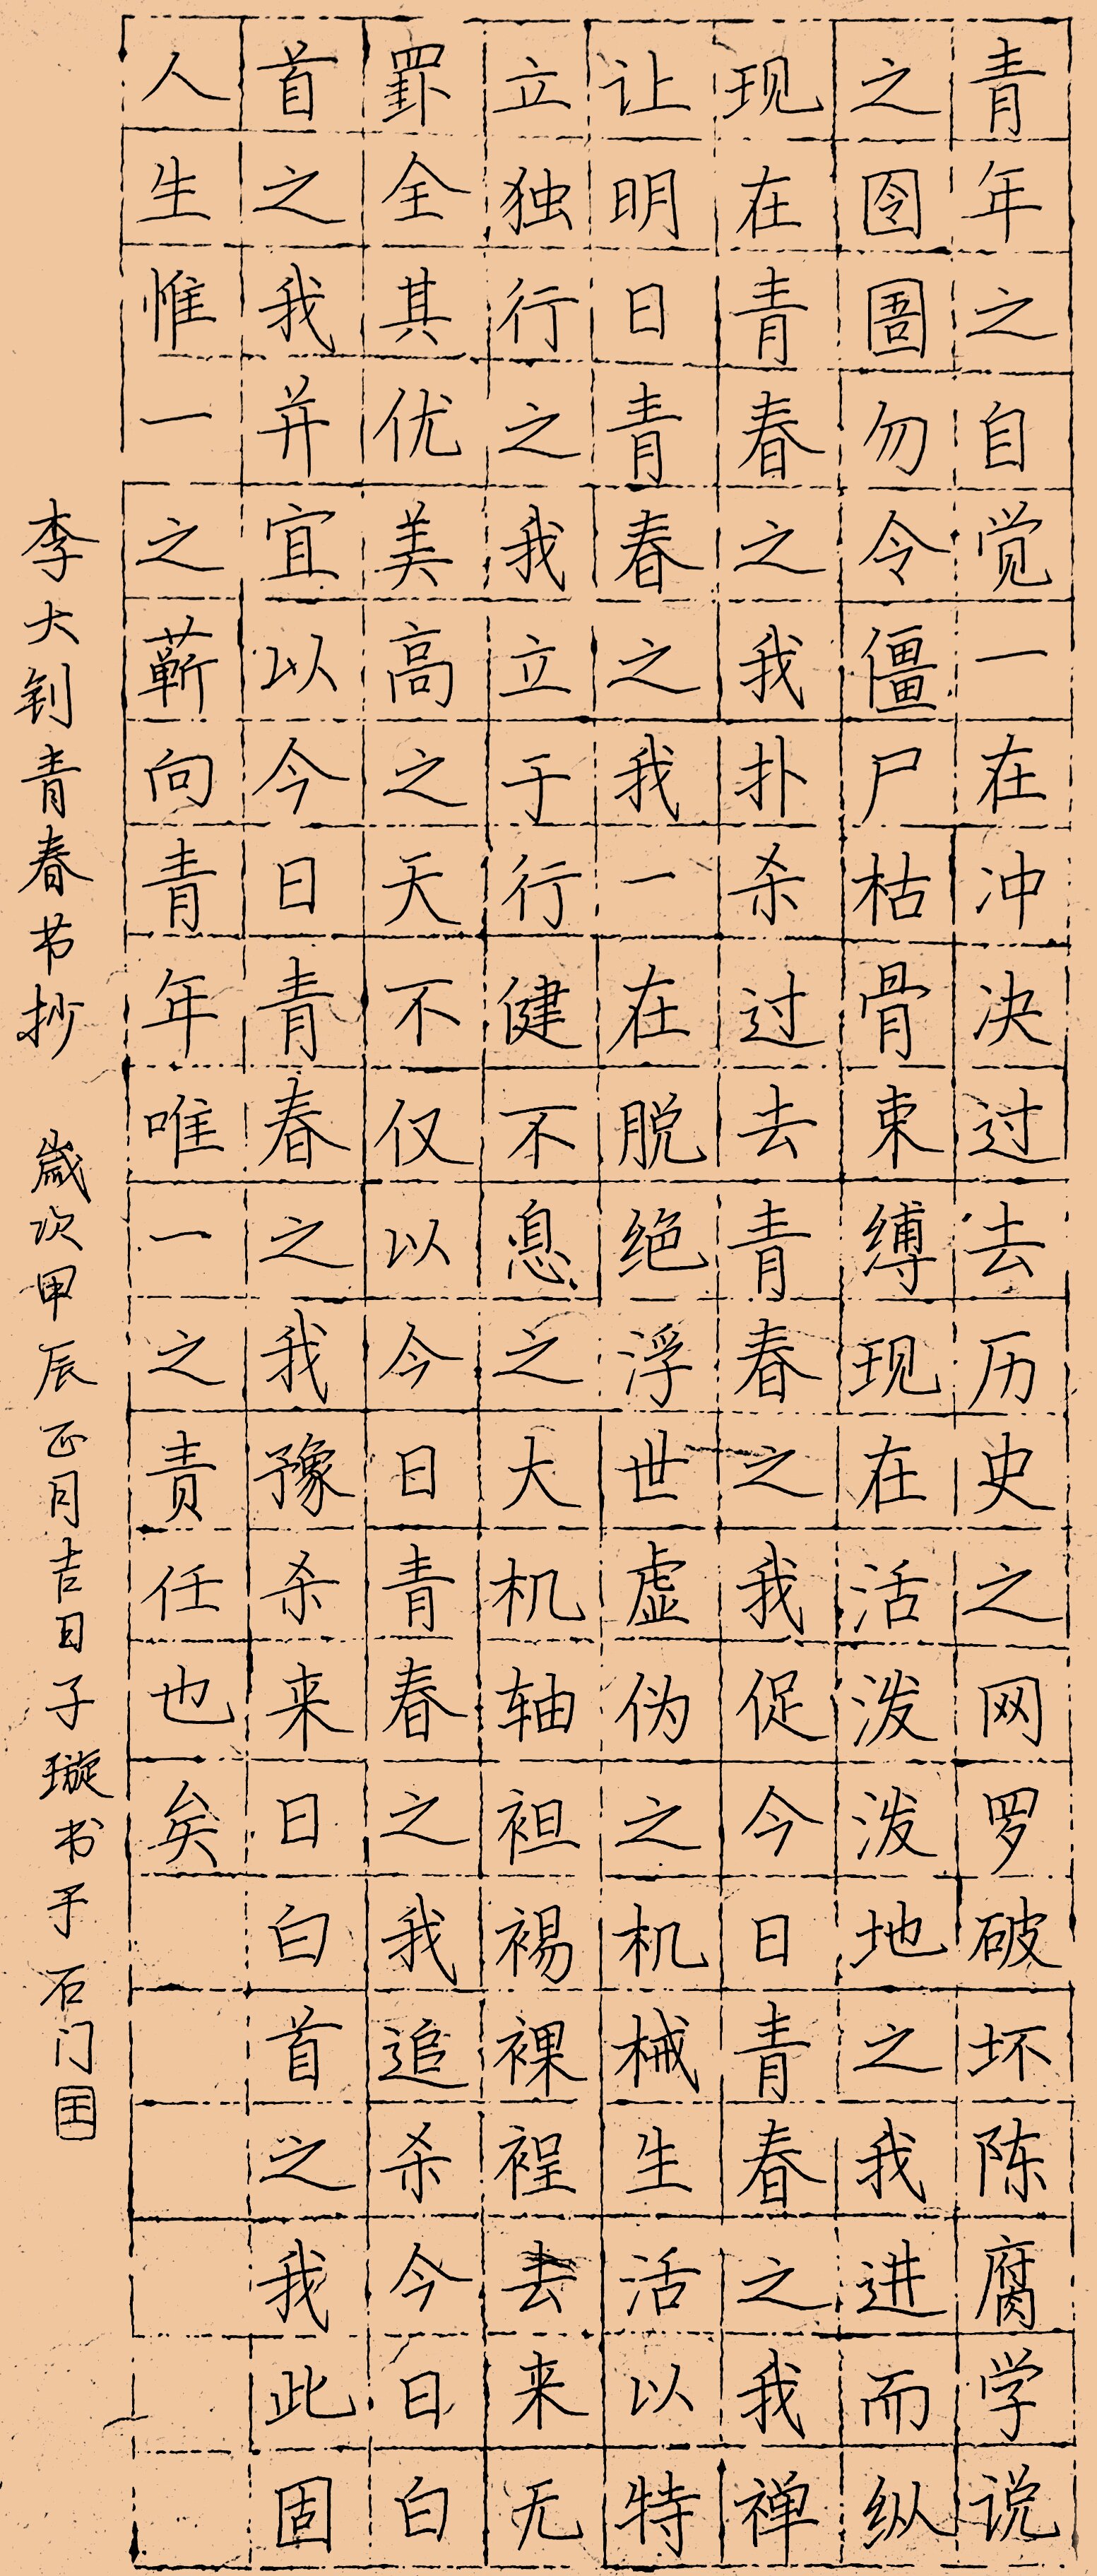 青年之自觉一在冲决过去历史之网罗破坏陈腐学说
之囹圄勿令僵尸枯骨束缚现在活泼泼地之我进而纵
现在青春之我扑杀过去青春之我促今日青春之我禅
让明日青春之我一在脱绝浮世虚伪之机械生活以特
立独行之我立于行健不息之大机轴袒裼裸裎去来无
罣全其优美高之天不仅以今日青春之我追杀今日白
首之我并宜以今日青春之我豫杀来日白首之我此固
人生惟一之蕲向青年唯一之责任也矣
李大钊青春节抄 歲次甲辰正月吉日子璇书于石门